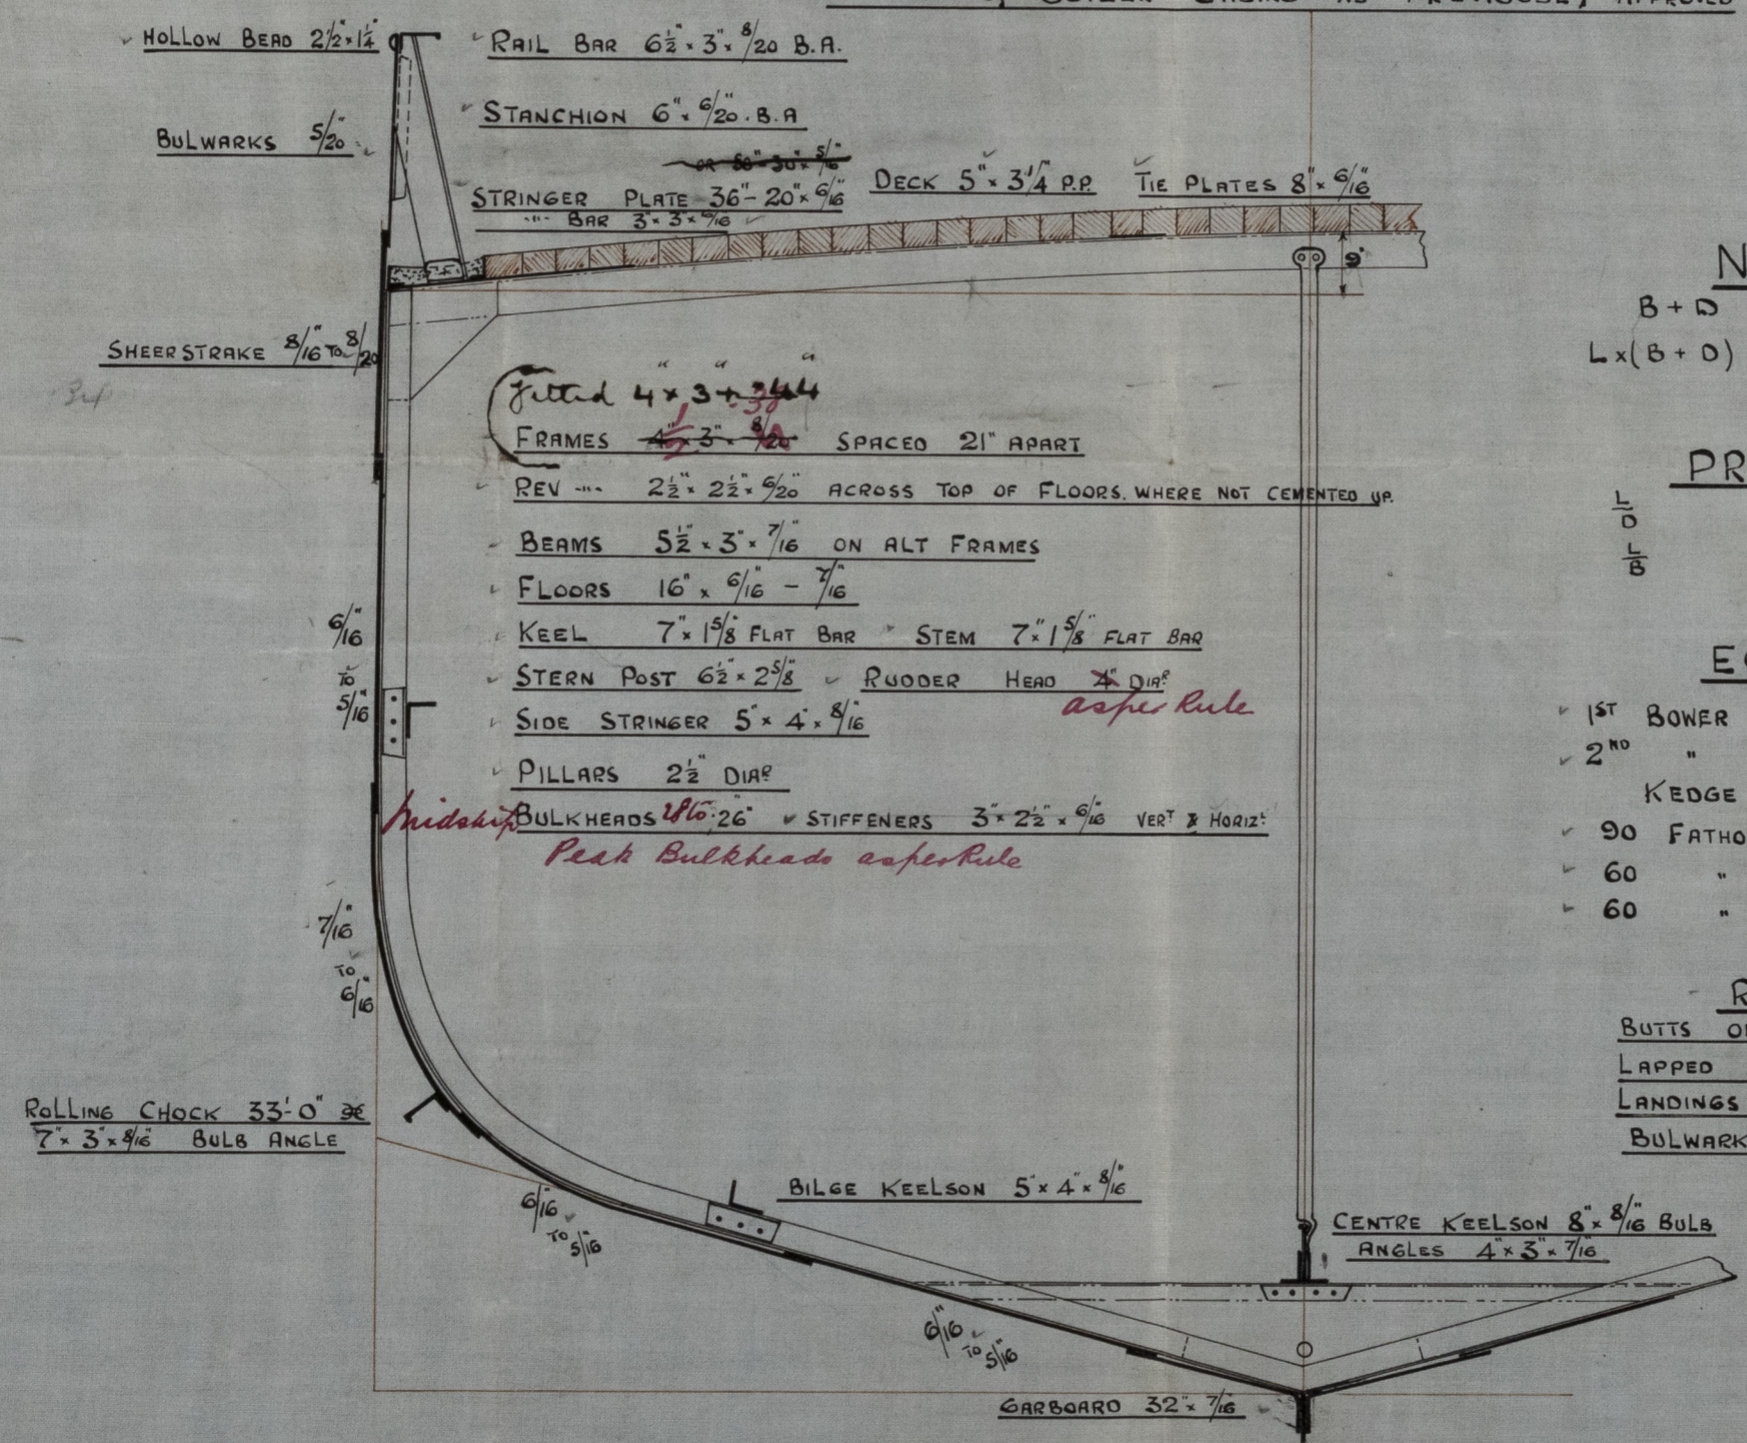 HOLLOW BEAD 2½" × 1¼"
RAIL BAR 6½" × 3" × 8/20" B.A.
STANCHION 6" × 6/20" . B.A
BULWARKS 5/20"
STRINGER PLATE 36" – 20" × 6/16"
DECK 5" × 3¼" P.P.
TIE PLATES 8" × 6/16"
-"- BAR 3" × 3" × 6/16"
9"
SHEERSTRAKE 8/16" TO 8/20
Fitted 4" × 3" +
FRAMES SPACED 21" APART
REV -"- 2½" × 2½" × 6/20" ACROSS TOP OF FLOORS. WHERE NOT CEMENTED UP.
BEAMS 5½" × 3" × 7/16" ON ALT FRAMES
FLOORS 16" × 6/16" – 7/16"
KEEL 7" × 1⅝" FLAT BAR STEM 7" × 1⅝" FLAT BAR
STERN POST 6½" × 2⅝" RUDDER HEAD 4" DIAR
as per Rule
SIDE STRINGER 5" × 4" × 8/16"
PILLARS 2½" DIAR
Midship BULKHEADS 26" STIFFENERS 3" × 2½" × 6/16" VERT & HORIZL
Peak Bulkheads as per Rule
6/16"
TO
5/16"
7/16"
TO
6/16"
ROLLING CHOCK 33'-0"
7" × 3" × 8/16" BULB ANGLE
6/16"
TO 5/16"
BILGE KEELSON 5" × 4" × 8/16"
CENTRE KEELSON 8" × 8/16" BULB
ANGLES 4" × 3" × 7/16"
6/16"
TO 5/16"
GARBOARD 32" × 7/16"
B + D
L × (B + D)
PR
L/D
L/B
1ST BOWER
2ND "
KEDGE
90 FATHO
60 "
60 "
BUTTS
LAPPED
LANDINGS
BULWARK